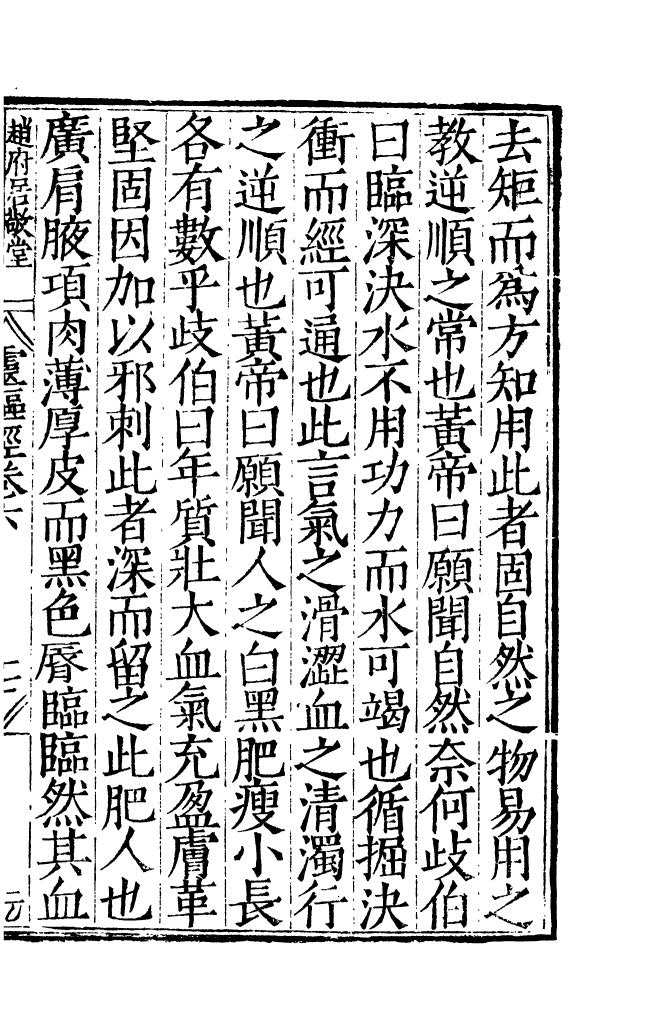 去矩而爲方知用此者固自然之物易用之
教逆順之常也黃帝曰願聞自然奈何歧伯
曰臨深決水不用功力而水可竭也循掘決
衝而經可通也此言氣之滑澀血之清濁行
之逆順也黃帝曰願聞人之白黑肥瘦小長
各有數乎歧伯曰年質壯大血氣充盈膚革
堅固因加以邪刺此者深而留之此肥人也
廣肩腋項肉薄厚皮而黑色脣臨臨然其血
趙府居敬堂
靈樞經卷六